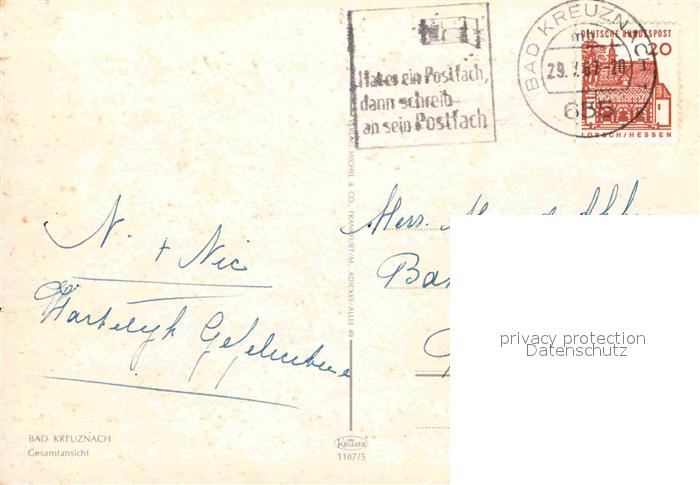 Hat er ein Postfach,
dann schreib-
an sein Postfach
BAD KREUZNACH
mb
29.7.67-20
655
DEUTSCHE BUNDESPOST
20
LORSCH/HESSEN
VERLAG MICHEL & CO. FRANKFURT/M. ADICKES-ALLEE 49
N. + Nic
Hartelijk Gefeliciteerd
Herr.
privacy protection
Datenschutz
BAD KREUZNACH
Gesamtansicht
KRÜGER
1187/5